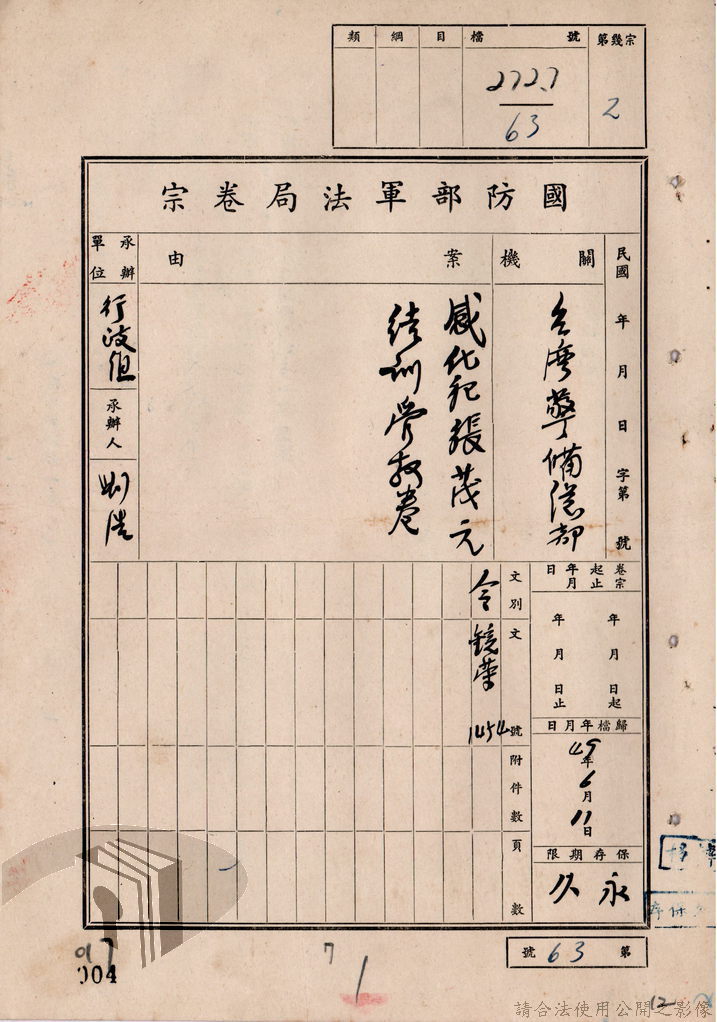 類 綱 目 檔 號 第幾宗
2727
63
2
國防部軍法局卷宗
民國 年 月 日 字第 號
機關
台灣警備總部
案由
感化犯張茂元
結訓管教卷
承辦單位
行政組
承辦人
卷宗起止年月日
年 月 日起
年 月 日止
歸檔年月日
49年6月11日
保存期限
永久
文別
令
文號
鏡榮
1454
附件數
頁數
第 63 號
7
004
請合法使用公開之影像